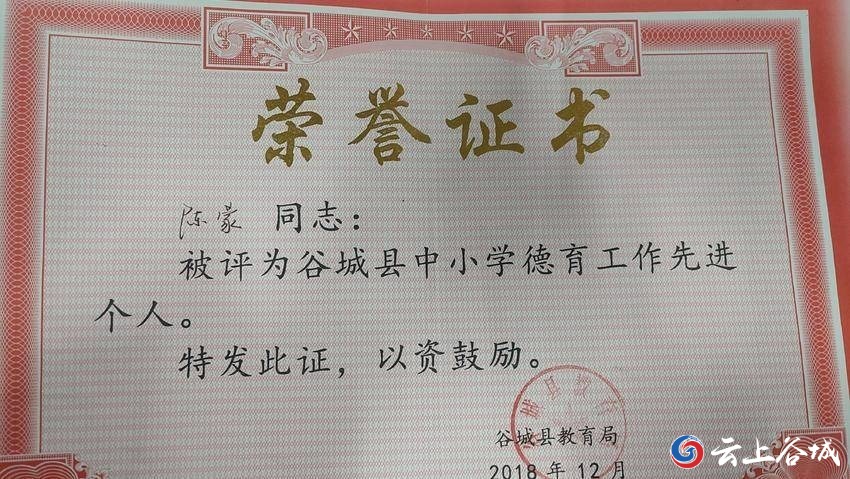 荣誉证书
陈蒙 同志：
被评为谷城县中小学德育工作先进
个人。
特发此证，以资鼓励。
谷城县教育局
2018 年 12 月
云上谷城